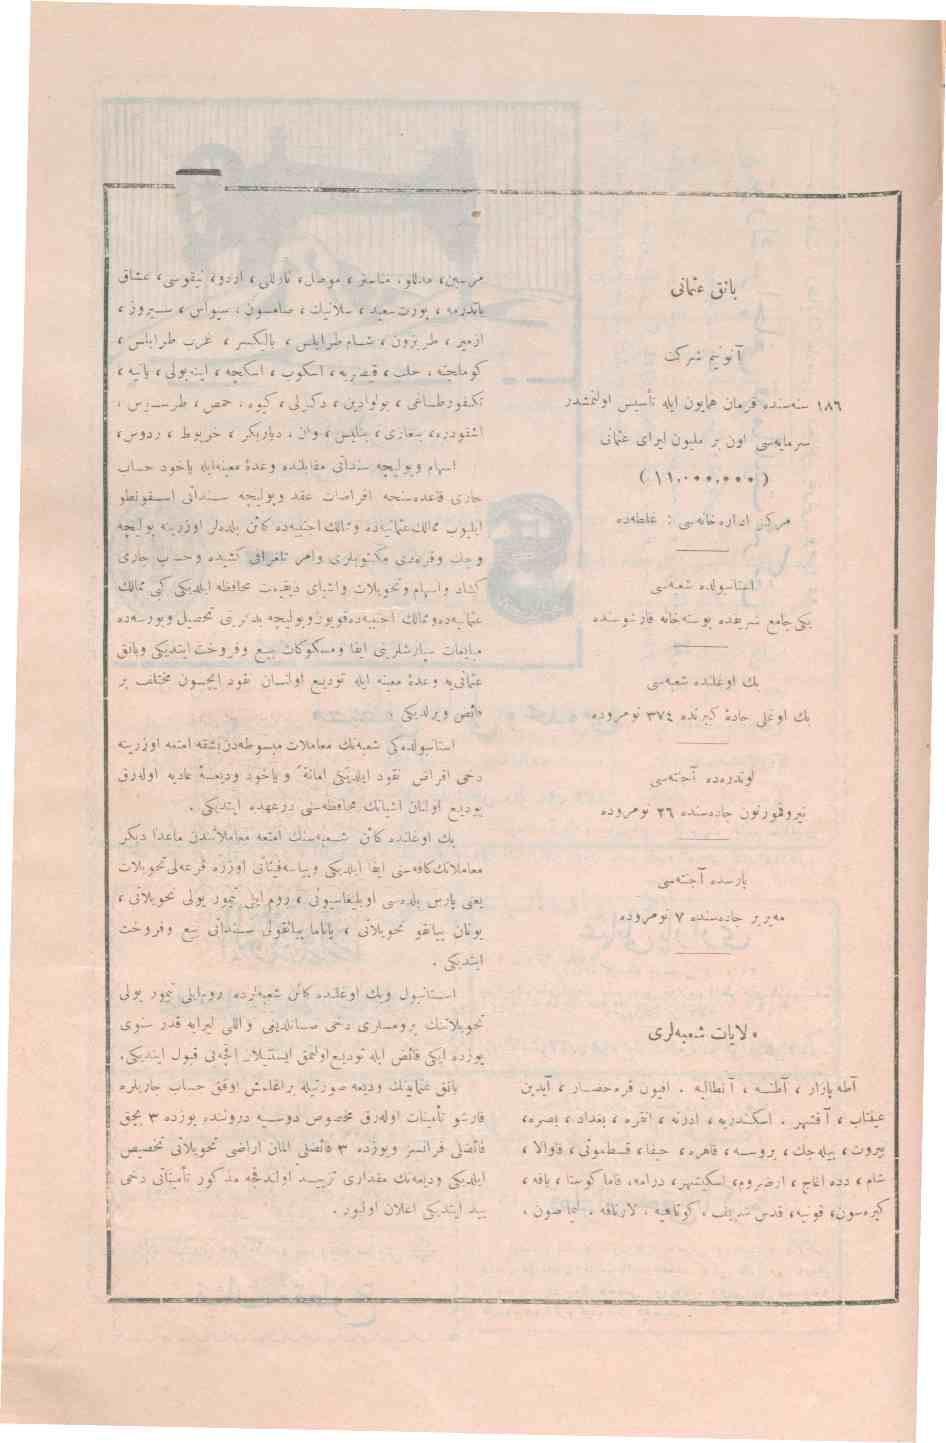 بانق عثمانی
آنونیم شرکت
١٨٦ سنه‌سنده فرمان همایون ایله تأسیس اولنمشدر
سرمایه‌سی اون بر ملیون لیرای عثمانی
(١١.٠٠٠.٠٠٠)
مرکز اداره‌خانه‌سی : غلطه‌ده
استانبولده شعبه‌سی
یکی جامع شریفده پوسته‌خانه قارشوسنده
بك اوغلنده شعبه‌سی
بك اوغلی جادهٔ کبیرنده ٣٧٤ نومروده
لوندره‌ده آجنته‌سی
جاده‌سنده ٢٦ نومروده
پارسده آجنته‌سی
مه‌یربر جاده‌سنده ٧ نومروده
ولایات شعبه‌لری
آطه‌پازار ، آطنه ، آنطالیه . افیون قره‌حصار ، آیدین
عینتاب ، آقشهر . اسکندریه ، ادرنه ، انقره ، بغداد ، بصره ،
بیروت ، بیله‌جك ، بروسه ، قاهره ، حیفا ، قسطمونی ، قاوالا ،
شام ، دده اغاج ، ارضروم ، اسکیشهر ، درامه ، فاماگوستا ، یافه ،
کیره‌سون ، قونیه ، قدس شریف ، کوتاهیه ، لارناقه . لیماصون .
مرسین ، مدللو . مناستر ، موصل ، نازللی ، اردو ، نیقوسی ، عشاق
باندرمه ، پورت سعید ، سلانیك ، صامسون ، سیواس ، سیروز ،
ازمیر ، طربزون ، شام طرابلس ، بالیکسر ، غرب طرابلس ،
کوملجنه . حلب ، قیصریه ، اسکوب ، اسکچه ، اینه‌بولی ، یانیه ،
تکفورطاغی ، بولوادین ، دکزلی ، کیوه . حمص ، طرسوس ،
اشقودره ، بنغازی ، نابلس ، وان . دیاربکر ، خربوط ، ردوس ،
اسهام وپولیچه سنداتی مقابلنده وعدهٔ معینه‌ایله یاخود حساب
جاری قاعده‌سنجه اقراضات عقد وپولیچه سنداتی اسقونطو
ایلیوب ممالك‌عثمانیه‌ده وممالك اجنبیه‌ده کائن بلده‌لر اوزرینه پولیچه
وچك وقره‌دی مکتوبلری واوامر تلغرافی کشیده وحساب جاری
کشاد واسهام وتحویلات واشیای ذیقیمت محافظه ایلدیکی کبی ممالك
عثمانیه‌ده‌وممالك اجنبیه‌ده‌قوپون‌وپولیچه بدللرینی تحصیل وبورسه‌ده
مبایعات سپارشلرینی ایفا ومسکوکات بیع وفروخت ایتدیکی وبانق
عثمانی‌یه وعدهٔ معینه ایله تودیع اولنان نقود ایچون مختلف بر
فائض ویرلدیکی .
استانبولده‌کی شعبه‌نك معاملات مبسوطه‌دن‌بشقه امتعه اوزرینه
دخی اقراض نقود ایلدیکی امانةً ویاخود ودیعهٔ عادیه اوله‌رق
تودیع اولنان اشیانك محافظه‌سنی درعهده ایتدیکی .
بك اوغلنده کائن شعبه‌سنك امتعه معاملاتندن ماعدا دیکر
معاملاتك کافه‌سنی ایفا ایلدیکی وپیاسه‌فیئاتی اوزره قرعه‌لی تحویلات
یعنی پارس بلده‌سی اوبلیغاسیونی ، روم‌ایلی تیمور یولی تحویلاتی ،
یونان بیانقو تحویلاتی ، پاناما بیانقولی سنداتی بیع وفروخت
ایتدیکی .
استانبول وبك اوغلنده کائن شعبه‌لرده روم‌ایلی تیمور یولی
تحویلاتنك پرومسلری دخی صاتلدیغی واللی لیرایه قدر سنوی
یوزده ایکی فائض ایله تودیع‌اولنمق ایستنیلان اقچه‌یی قبول ایتدیکی.
بانق عثمانینك ودیعه صورتیله براغلمش اوفق حساب جاریلره
قارشو تأمینات اوله‌رق مخصوص دوسیه دروننده یوزده ٣ بچق
فائضلی فرانسز ویوزده ٣ فائضلی المان اراضی تحویلاتی تخصیص
ایلدیکی ودیعه‌نك مقداری تزیید اولندقجه مذکور تأمیناتی دخی
تزیید ایتدیکی اعلان اولنور .